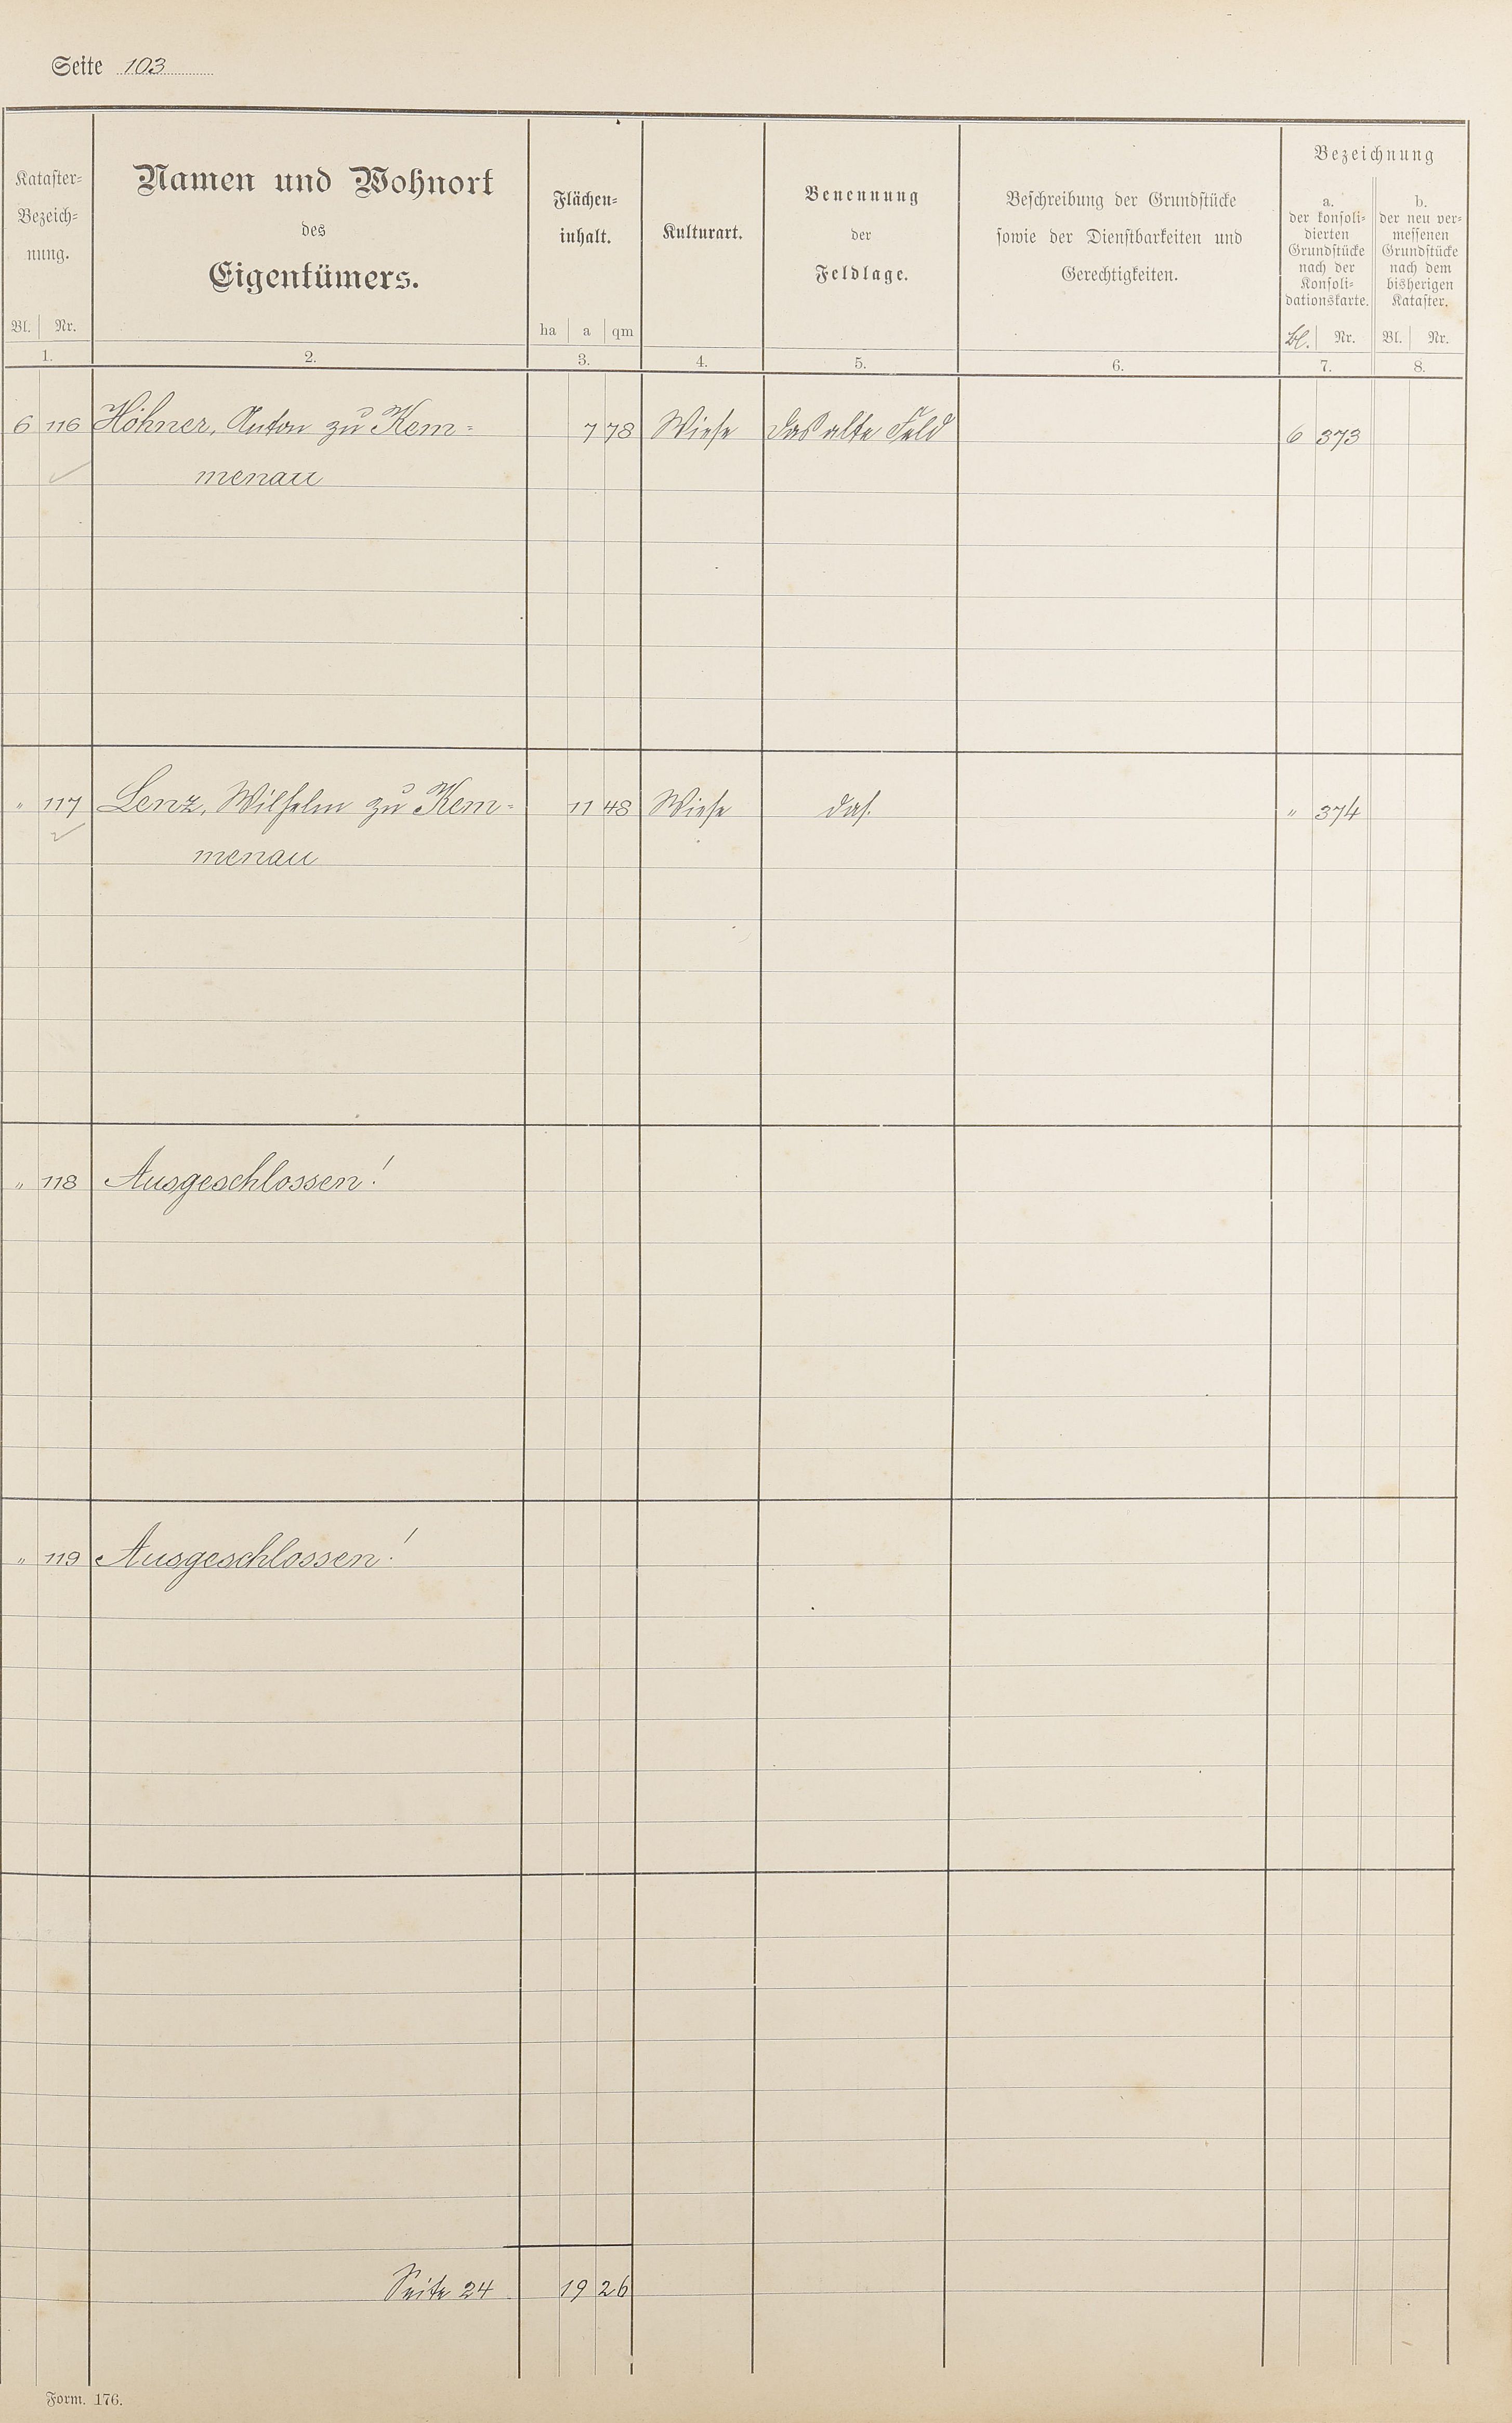 Seite 103
Kataster-
Bezeich-
nung.
Bl. Nr.
1.
Namen und Wohnort
des
Eigentümers.
2.
Flächen-
inhalt.
ha a qm
3.
Kulturart.
4.
Benennung
der
Feldlage.
5.
Beschreibung der Grundstücke
sowie der Dienstbarkeiten und
Gerechtigkeiten.
6.
Bezeichnung
a.
der konsoli-
dierten
Grundstücke
nach der
Konsoli-
dationskarte.
Bl. Nr.
7.
b.
der neu ver-
messenen
Grundstücke
nach dem
bisherigen
Kataster.
Bl. Nr.
8.
6 116 Höhner, Anton zu Kem- 7 78 Wiese Das alte Feld 6 373
menau
" 117 Lenz, Wilhelm zu Kem- 11 48 Wiese das. " 374
menau
" 118 Ausgeschlossen!
" 119 Ausgeschlossen!
Seite 24 19 26
Form. 176.